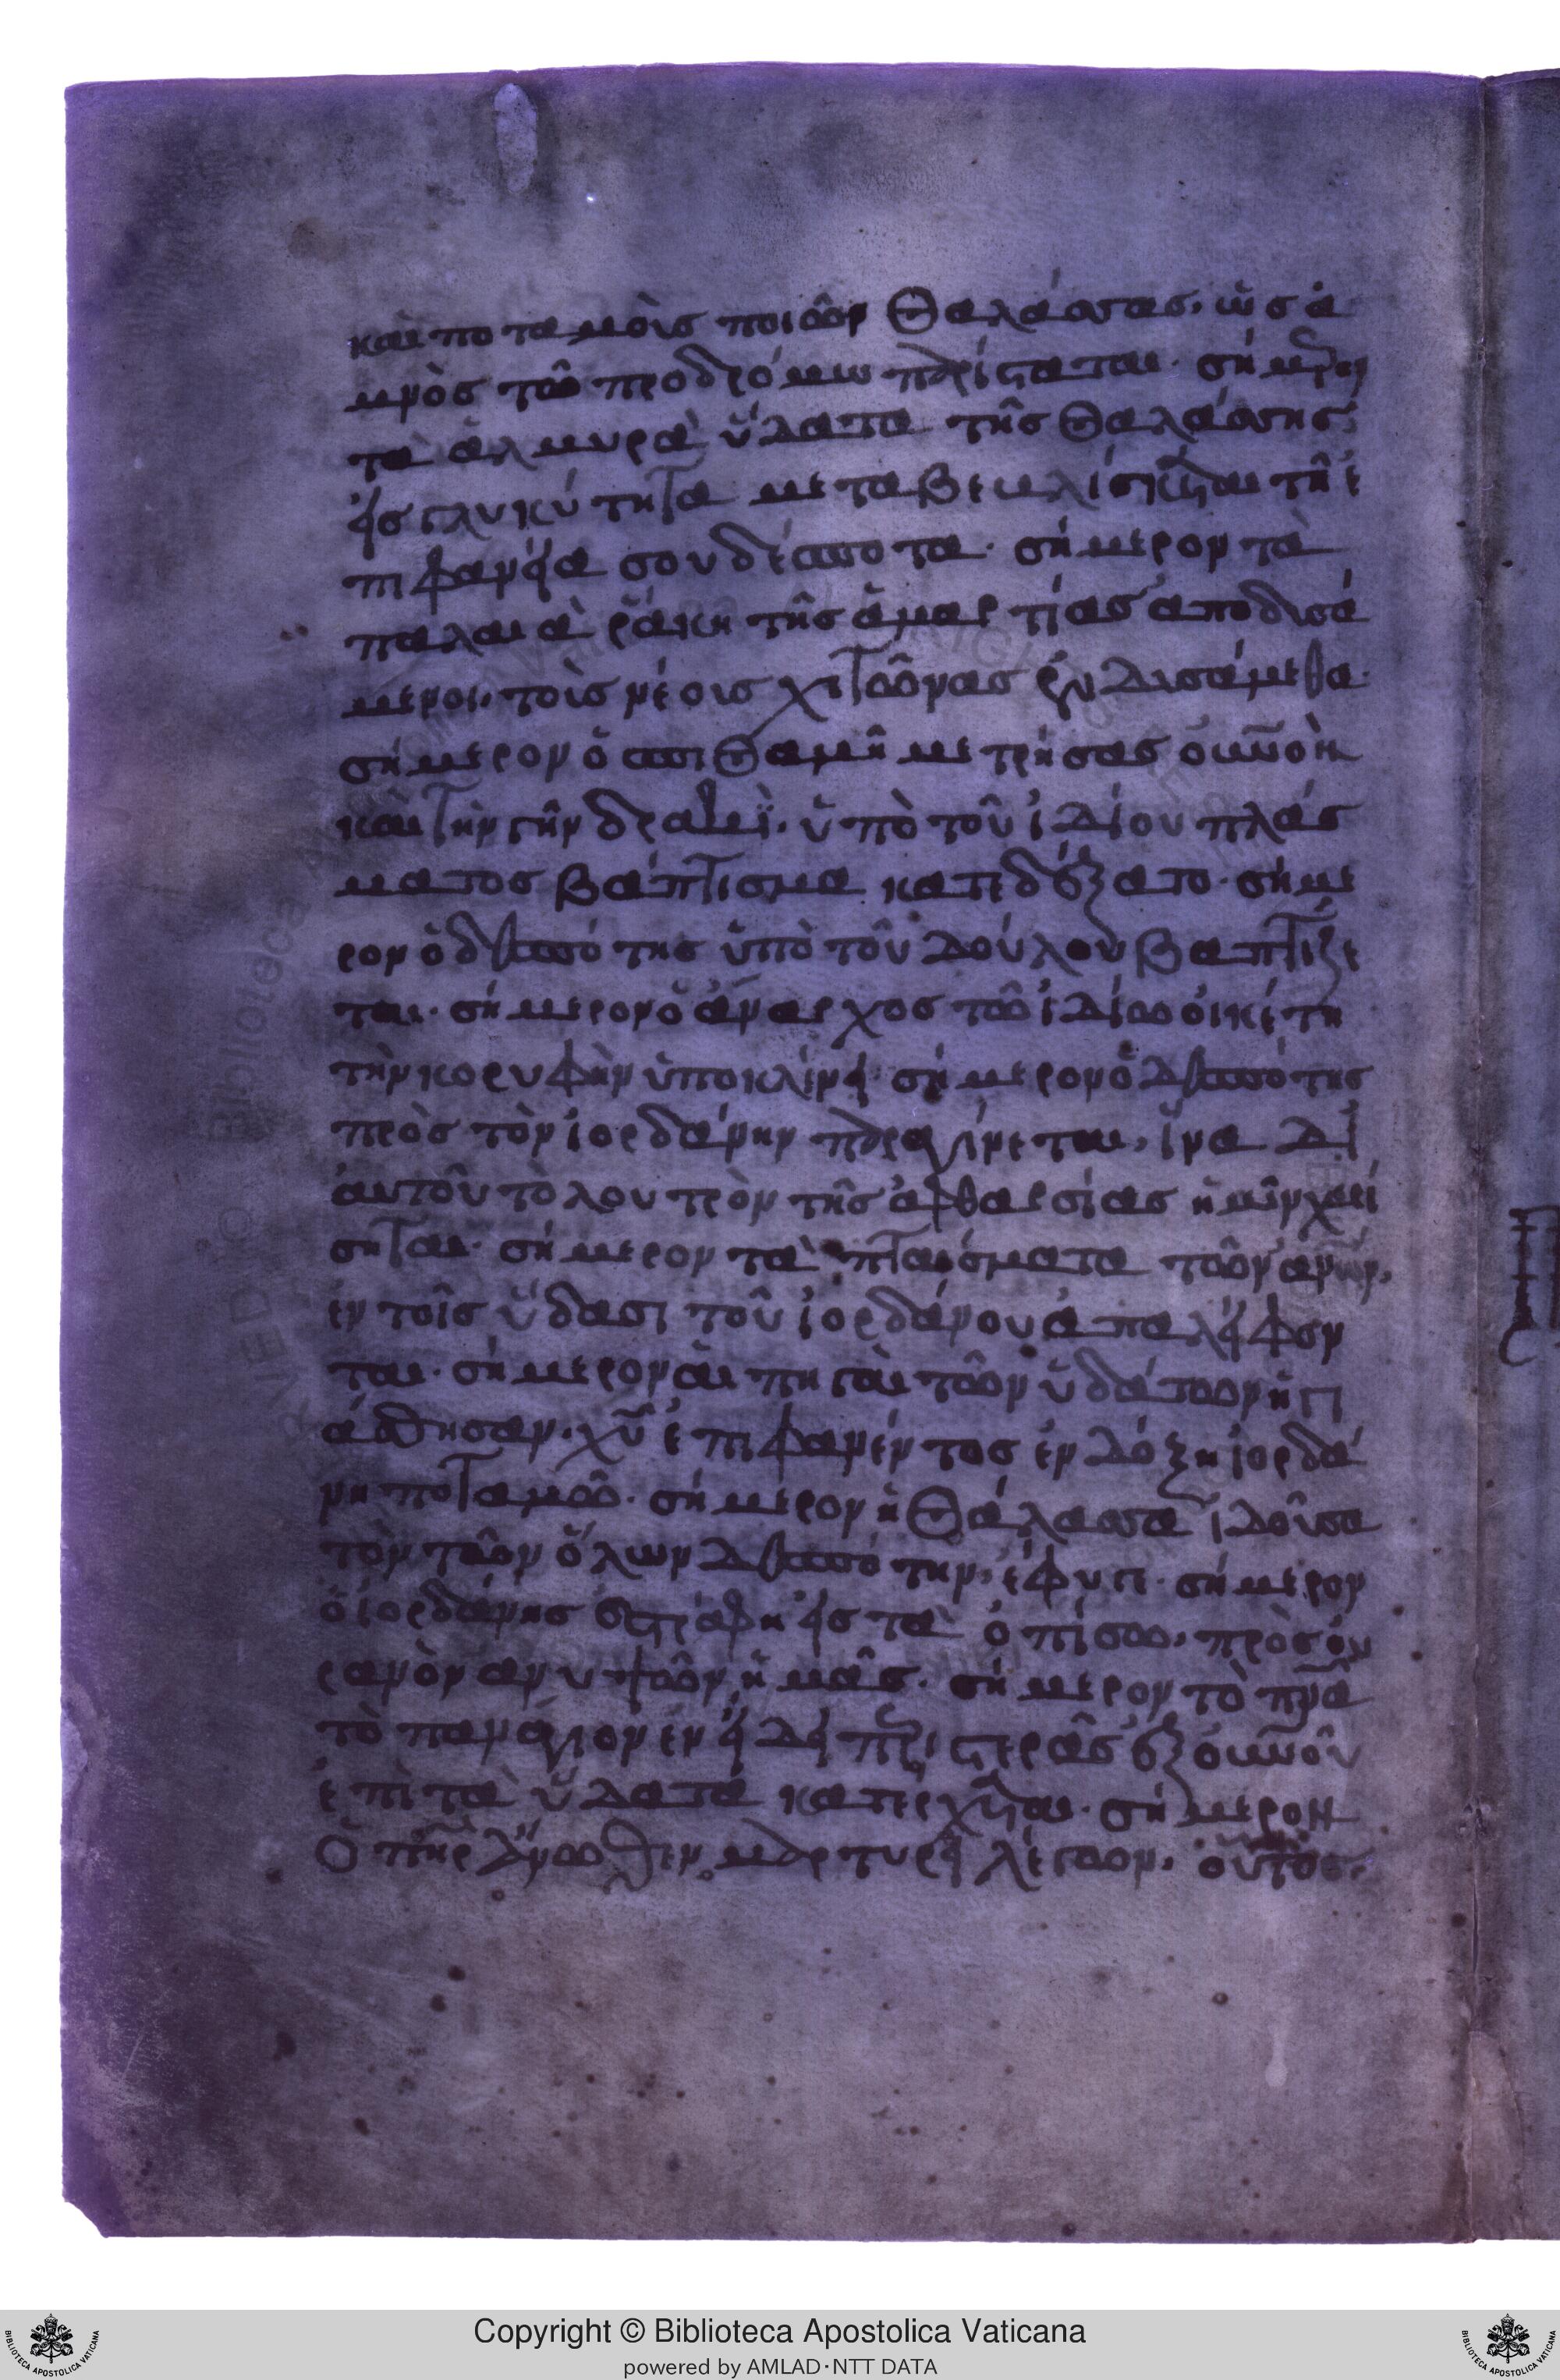 και ποταμοὺς ποιῶν θαλάσσας, ὡς ἀ
μνὸς τῶ προδρόμω παρίσταται· σήμερον
τὰ ἁλμυρὰ ὕδατα τῆς θαλάσσης,
εἰς γλυκύτητα μεταβεμλίσκεται τῆ ἐ
πιφανεία σου δέσποτα· σήμερον τὰ
παλαιὰ ῥάκη τῆς ἁμαρτίας ἀποδυσά
μενοι, τοὺς νέους χιτῶνας ἐνδυσάμεθα·
σήμερον ὁ σπιθαμῆ μετρήσας οὐνὸν
καὶ τὴν γῆν δρακὶ, ὑπὸ τοῦ ἰδίου πλάσ
ματος βάπτισμα κατεδέξατο· σήμε
ρον ὁ δεσπότης ὑπὸ τοῦ δούλου βαπτίζε
ται· σήμερον ὁ ἄναρχος τῶ ἰδίω οἰκέτη
τὴν κορυφὴν ὑποκλίνει· σήμερον ὁ δεσπότης
πρὸς τὸν ἰορδάνην παραγίνεται, ἵνα δι
αὐτοῦ τὸ λουτρὸν τῆς ἀφθαρσίας ἡμῖν χαρί
σηται· σήμερον τὰ πταίσματα τῶν ἀνων,
ἐν τοῖς ὕδασι τοῦ ἰορδάνου ἀπαλείφον
ται· σήμερον αἱ πηγαὶ τῶν ὑδάτων ἡγι
άσθησαν, χυ ἐπιφανέντος ἐν δόξη ἰορδά
νη ποταμῶ· σήμερον ἡ θάλασσα ἰδοῦσα
τὸν τῶν ὅλων δεσπότην, ἔφυγε· σήμερον
ὁ ἰορδάνης ἐστράφη εἰς τὰ ὀπίσω, πρὸς οὐ
ρανὸν ἀνυψῶν ἡμᾶς· σήμερον τὸ πνα
τὸ πανάγιον ἐν εἴδει περιστερᾶς ἐξ οὐνοῦ
ἐπὶ τὰ ὕδατα κατέρχεται· σήμερον
Ὁ πηρ ἄνωθεν μαρτυρεῖ λέγων, οὗτος,